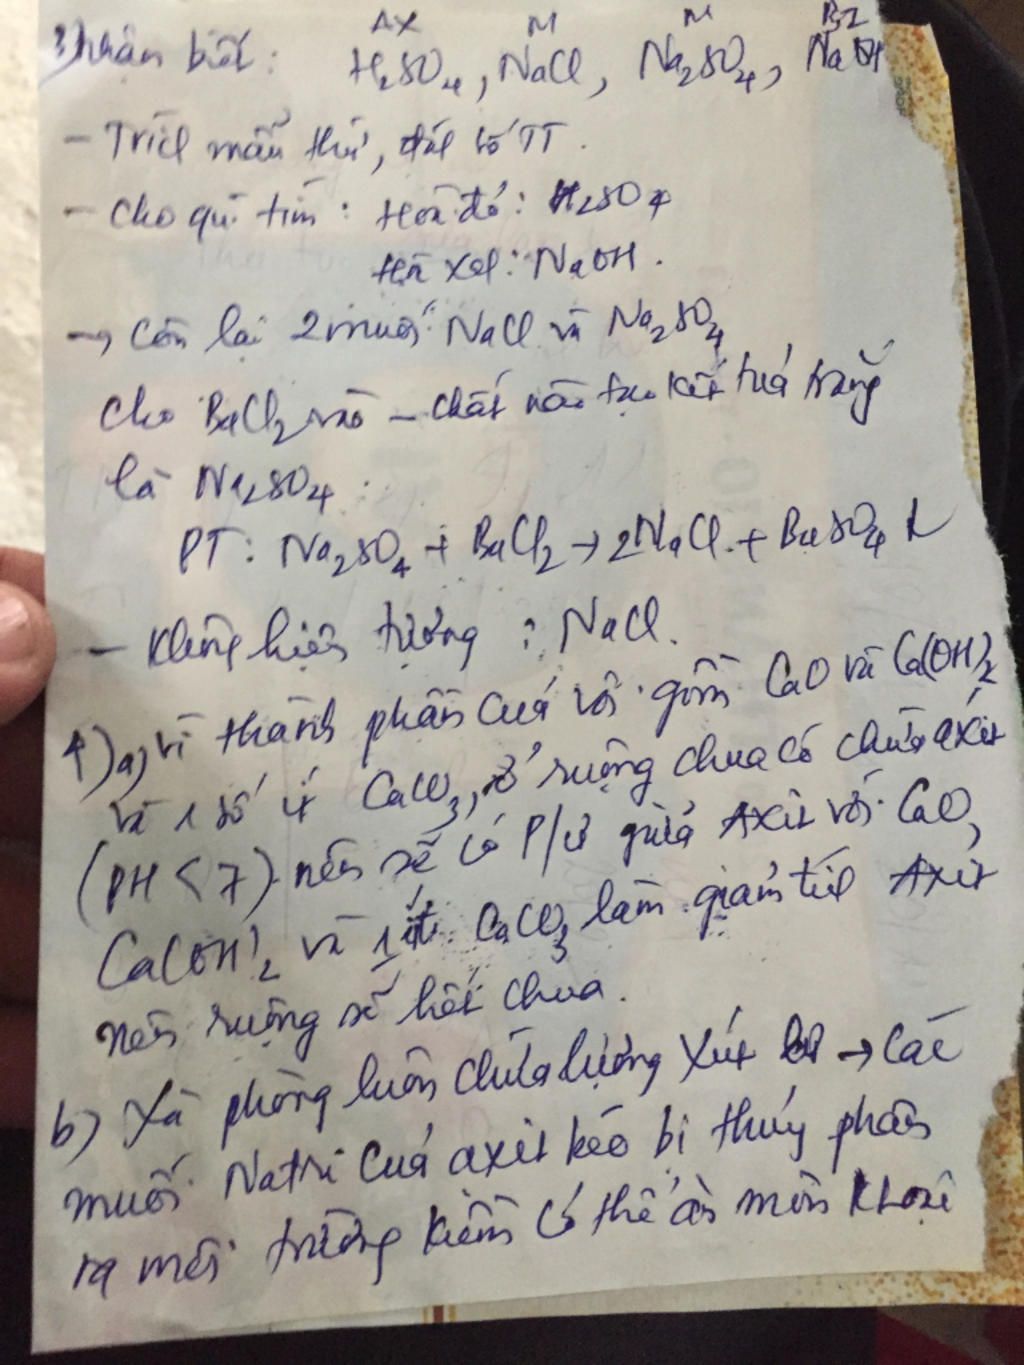 AX M M BZ
3) Nhận biết: H₂SO₄, NaCl, Na₂SO₄, NaOH
- Trích mẫu thử, đặt số TT.
- Cho quì tím: Hoá đỏ: H₂SO₄
Hoá xanh: NaOH.
→ Còn lại 2 muối NaCl và Na₂SO₄
Cho BaCl₂ vào - chất nào tạo kết tuả trắng
là Na₂SO₄:
PT: Na₂SO₄ + BaCl₂ → 2NaCl + BaSO₄ ↓
- Không hiện tượng : NaCl.
4) a) vì thành phần cuả vôi gồm CaO và Ca(OH)₂
và 1 số ít CaCO₃, ở ruộng chua có chứa axit
(PH < 7) nên sẽ có P/ư giữa Axit với CaO,
Ca(OH)₂ và 1 ít CaCO₃ làm giảm tính Axit
nên ruộng sẽ hết chua.
b) Xà phòng luôn chứa lượng xút → các
muối Natri cuả axit béo bị thủy phân
ra môi trường kiềm có thể ăn mòn kloại